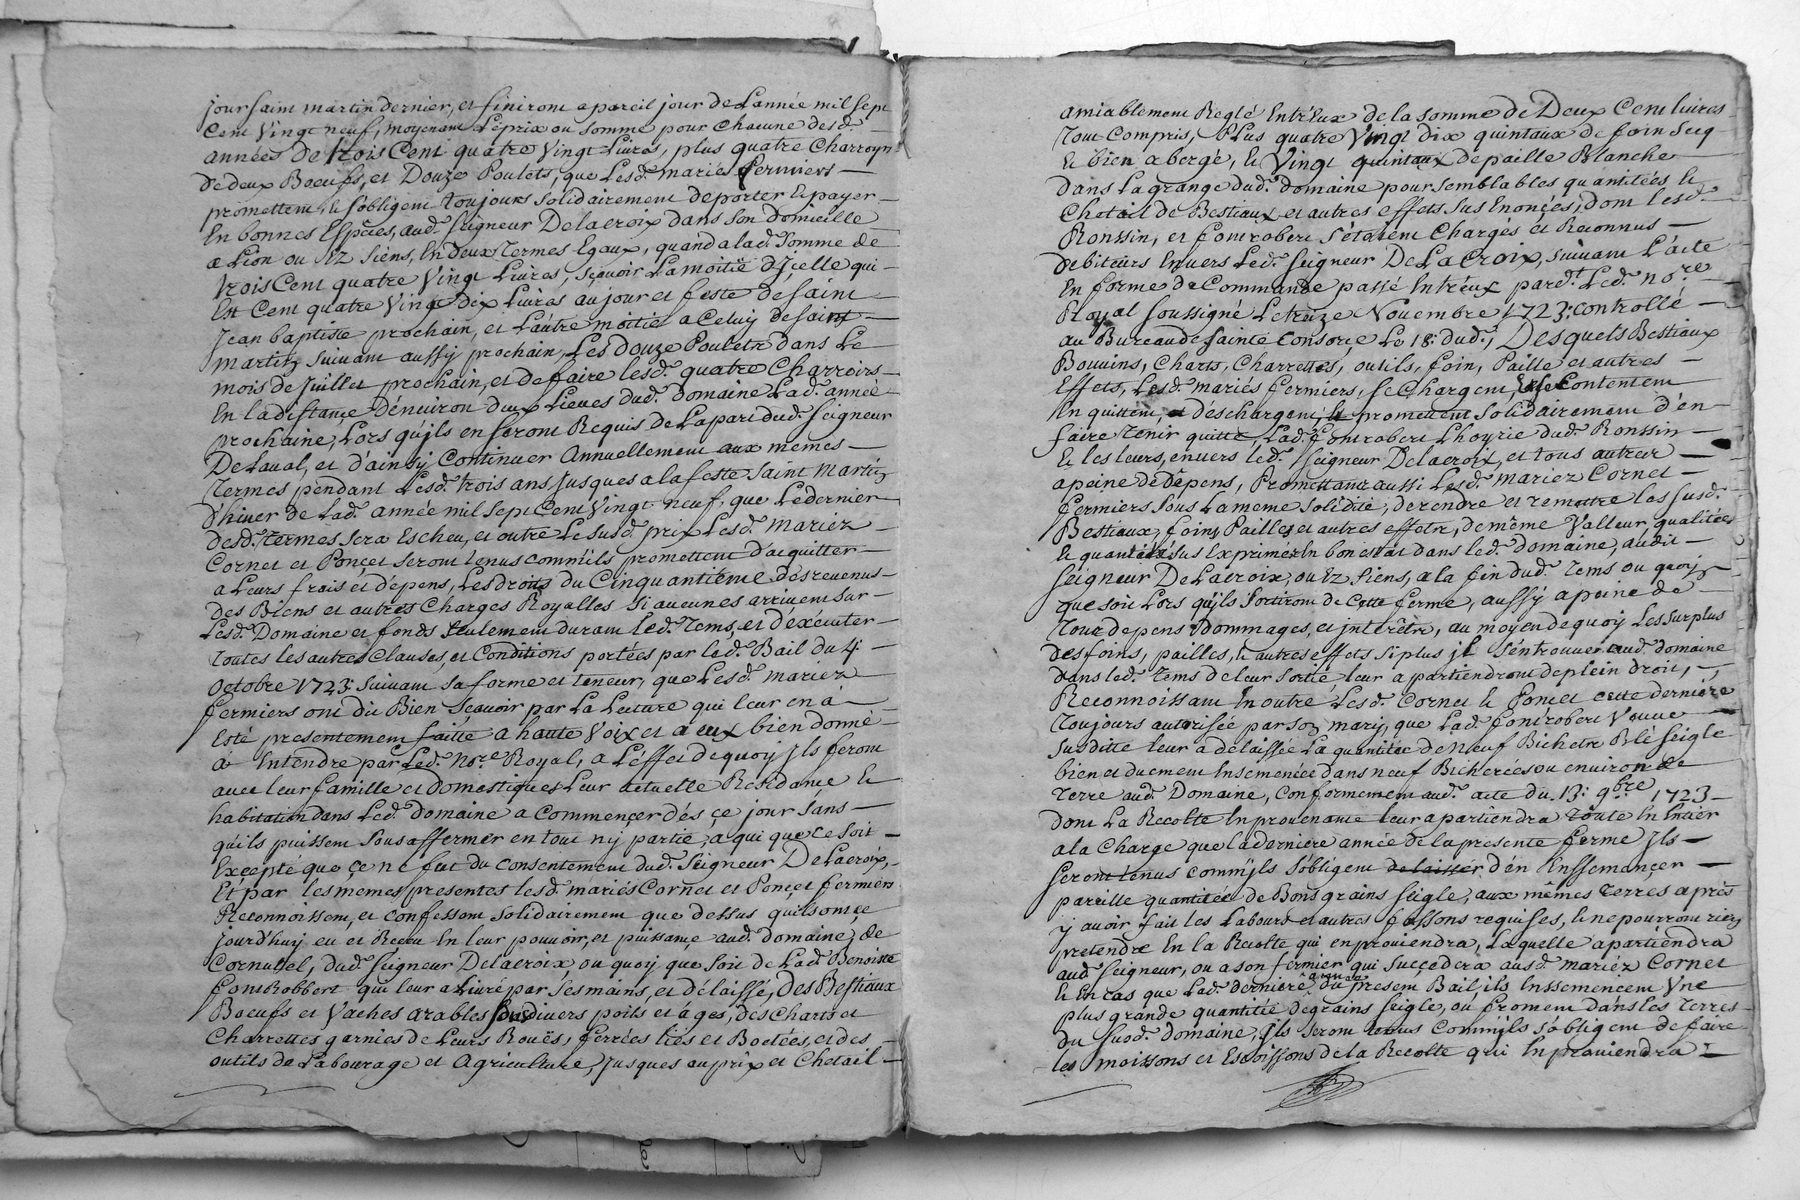 jour saint martin dernier, et finiront a pareil jour de Lannée mil sept
Cent Vingt neuf, moyenant Le prix ou somme pour Chacune desd.
années de trois Cent quatre Vingt Livres, plus quatre Charroys
de deux Boeufs, et Douze Poulets, que Lesd. mariés fermiers
promettent et sobligent toujours solidairement de porter et payer
En bonnes Espéces, aud. seigneur Delacroix dans son domicille
a Lion ou Ez siens, En deux termes Egaux, quand a lad. somme de
trois Cent quatre Vingt Livres, sçavoir La moitié d'Jcelle qui
Est Cent quatre Vingt dix Livres au jour et feste de saint
Jean baptiste prochain, et L'autre moitié a Celuy de saint
martin suivant aussy prochain, Les douze Poulets dans Le
mois de Juillet prochain, et de faire lesd. quatre Charroirs
En la distançe d'énviron deux Lieues dud. domaine Lad. année
prochaine, Lors qu'jls en seront Requis de La part dud. seigneur
De Laval, et d'ainsy Continuer Annuellement aux mêmes
termes pendant Lesd. trois ans jusques a la feste saint martin
d'hiver de Lad. année mil sept Cent Vingt neuf, que Le dernier
desd. termes sera Escheu, et outre Le susd. prix Lesd. mariéz
Cornet et Ponçet seront tenus comm'ils promettent d'acquitter
a Leurs frais et dépens, Les droits du Cinquantiéme des revenus
des Biens et autres Charges Royalles si aucunes arrivent sur
Lesd. Domaine et fonds seulement durant led. tems, et d'éxécuter
toutes les autres Clauses, et Conditions portées par led. Bail du 4
Octobre 1723 suivant sa forme et teneur, que Lesd. mariez
fermiers ont dit Bien sçavoir par La Lecture qui leur en à
Esté presentement faitte a haute Voix et a eux bien donné
a Entendre par Led. Nore Royal, a L'éffet de quoy jls feront
avec leur famille et domestiques Leur actuelle Residance et
habitation dans Led. domaine a commencer dés çe jour sans
qu'ils puissent sous affermer en tout ny partie, a qui que ce soit
Excepté que çe ne fut du consentement dud. seigneur De Lacroix,
Et par les mêmes presentes lesd. mariés Cornet et Ponçet fermiers
Reconnoissent, et confessent solidairement que dessus qu'ils ont çe
jourd'huy eu et Receu En leur pouvoir, et puissance aud. domaine de
Cornuttel, dud. seigneur Delacroix, ou quoy que soit de Lad. Benoiste
fontRobbert qui leur a Livré par ses mains, et délaissé, Des Bestiaux
Boeufs et Vaches arables sous divers poils et âges, des Charts et
Charrettes garnies de Leurs Rouës, ferrées liés et Boetées, et des
outils de Labourage et Agriculture, jusques au prix et Chetail
amiablement Reglé Entr'Eux de la somme de Deux Cent livres
tout Compris, PLus quatre Vingt dix quintaux de foin secq
et bien abergé, et Vingt quintaux de paille Blanche
dans La grange dud. domaine pour semblables quantitées et
Chetail de Bestiaux et autres effets sus Enonçés, dont lesd.
Ronssin, et fontrobert s'étoient Chargés et Reconnus
debiteurs Envers Led. seigneur De La Croix, suivant L'acte
En forme de Commande passé Entr'eux pardt. Led. nore
Royal soussigné Le treize Novembre 1723. Controllé
au Bureau de sainte Consorçe Le 18. dud., Desquels Bestiaux
Bouvins, Charts, Charrettes, outils, foin, Paille et autres
Effets, Lesd. mariés fermiers, se Chargent, et se Contentent
En quittent, et deschargent, et promettent solidairement d'en
faire tenir quitte, Lad. fontrobert L'hoyrie dud. Ronssin
et les leurs, envers led. seigneur Delacroix, et tous autres
a peine de dépens, Promettant aussi Lesd. mariez Cornet
fermiers sous La même solidité, de rendre et remettre les susd.
Bestiaux, foins Pailles et autres effets, de même Valleur, qualitées
et quantité sus Exprimez En bon estat dans led. domaine, audit
seigneur De Lacroix, ou Ez siens, a la fin dud. tems ou quoy
que soit Lors qu'ils sortiront de Cette ferme, aussy a peine de
tous depens dommages, et interêtz, au moyen de quoy Les surplus
des foins, pailles, et autres effets si plus jl s'en trouve aud. domaine
dans led. tems de leur sortie, leur apartiendront de plein droit,
Reconnoissant En outre Lesd. Cornet et Ponçet cette derniére
toujours autorisée par son mary, que Lad. fontrobert Veuve
susditte leur à délaissée La quantitée de Neuf Bichetz Blé seigle
bien et duement Ensemencée dans neuf Bicherées ou environ de
terre aud. Domaine, Conformement aud. acte du 13. 9bre 1723
dont La Recolte En provenante leur apartiendra toute En Entier
a la Charge que la derniere année de la presente ferme jls
seront tenus comm'jls s'obligent d'en Enssemançer
pareille quantitée de Bons grains seigle, aux mêmes terres aprés
y avoir fait les Labours et autres fassons requises, et ne pourront rien
pretendre En la Recolte qui en proviendra, Laquelle apartiendra
aud. seigneur, ou a son fermier qui sucçedera ausd. mariéz Cornet
et En cas que Lad. derniére année du present Bail ils Enssemencent Une
plus grande quantitée de grains seigle, ou froment dans les terres
du susd. domaine, jls seront tenus comm'jls s'obligent de faire
les moissons et Escoissons de la Recolte qui En proviendra